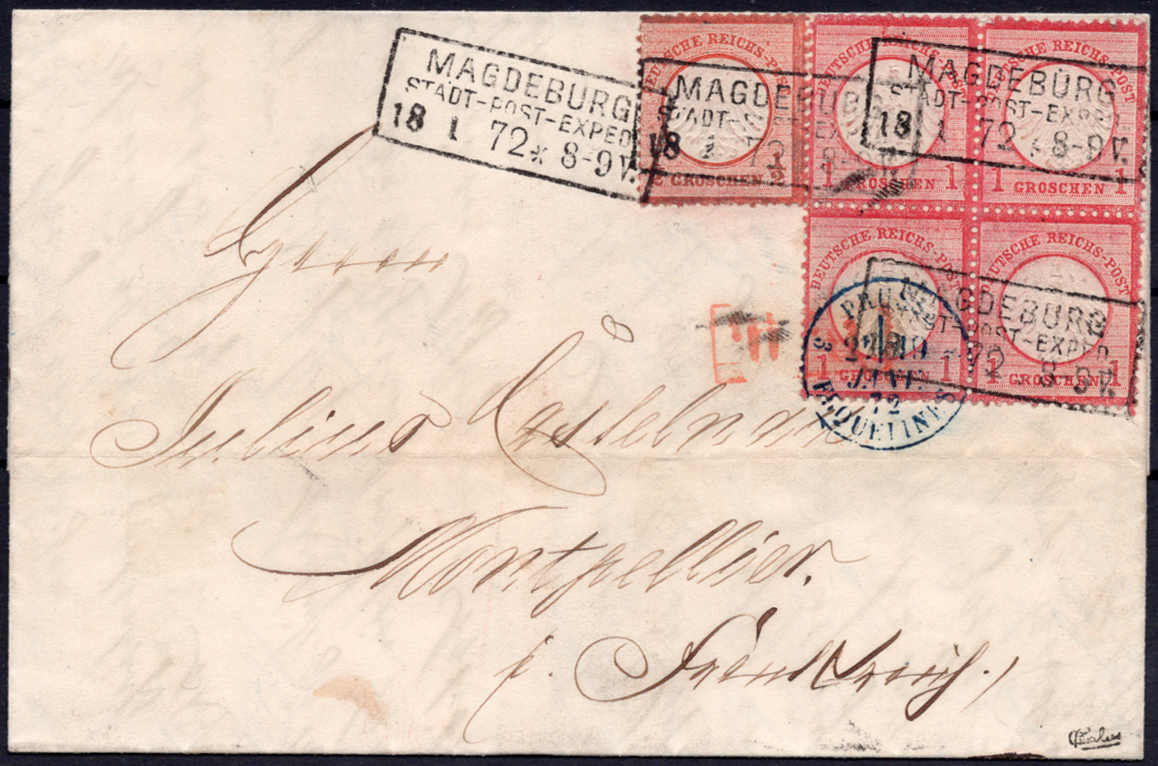 MAGDEBURG
STADT-POST-EXPED
18 1 72 * 8-9 V.
DEUTSCHE REICHS-POST
1/2 GROSCHEN 1/2
MAGDEBU
STADT-
18 1 72 8-
DEUTSCHE REICHS-POST
1 GROSCHEN 1
DEUTSCHE REICHS-POST
1 GROSCHEN 1
MAGDEBURG
STADT-POST-EXPED
18 1 72 * 8-9 V.
DEUTSCHE REICHS-POST
1 GROSCHEN 1
DEUTSCHE REICHS-POST
1 GROSCHEN 1
MAGDEBURG
T-POST-EXPED
72 8-9 V.
PRUSSE
3 3
JANV
72
ERQUELINES
Herrn
Julius Castelnau
Montpellier.
i. Frankreich.